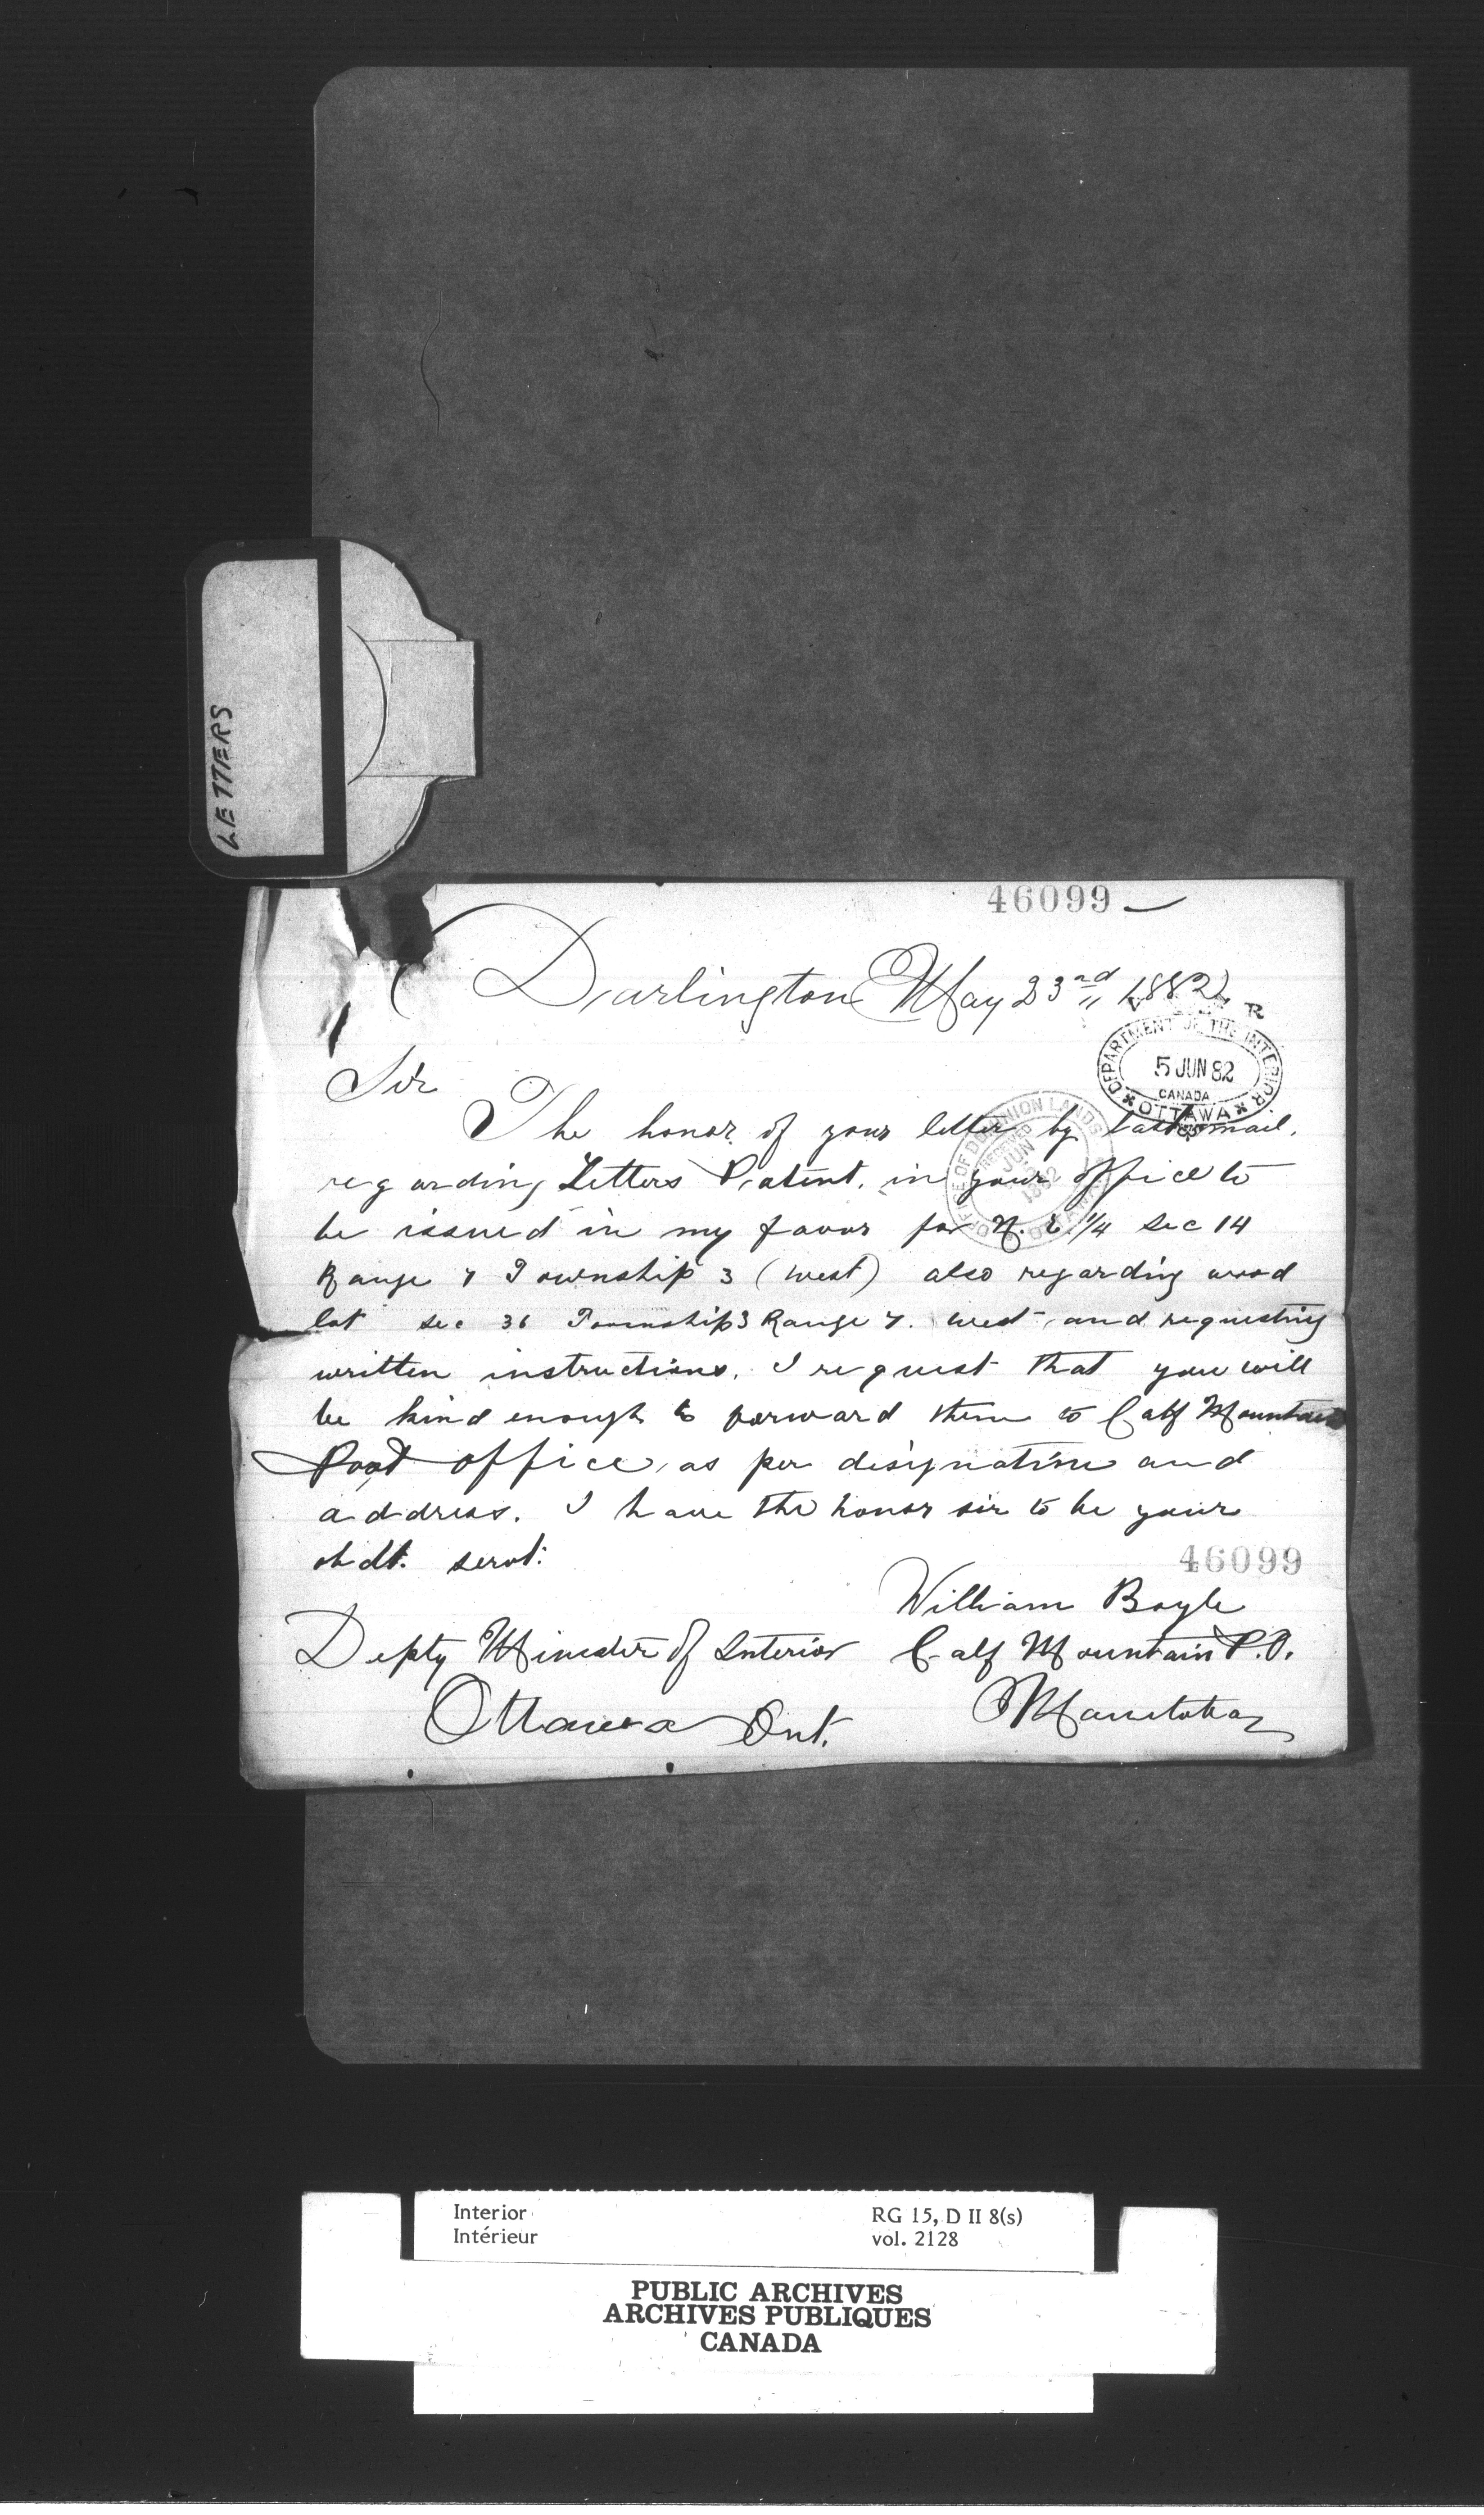 LETTERS
46099
Darlington May 23rd 1882
DEPARTMENT OF THE INTERIOR
5 JUN 82
CANADA
OTTAWA
Sir
The honor of your letter by last mail.
OFFICE OF DOMINION LANDS
RECEIVED
JUN
1882
regarding Letters Patent. in your office to
be issued in my favor for N. E. 1/4 sec 14
Range 7 Township 3 (west) also regarding wood
lot sec 36 Township 3 Range 7. west, and requesting
written instructions. I request that you will
be kind enough to forward them to Calf Mountain
Post office, as per designation and
address. I have the honor sir to be your
obdt. servt:
46099
William Bogle
Depty Minister of Interior Calf Mountain P.O.
Ottawa Ont. Manitoba
Interior RG 15, D II 8(s)
Intérieur vol. 2128
PUBLIC ARCHIVES
ARCHIVES PUBLIQUES
CANADA